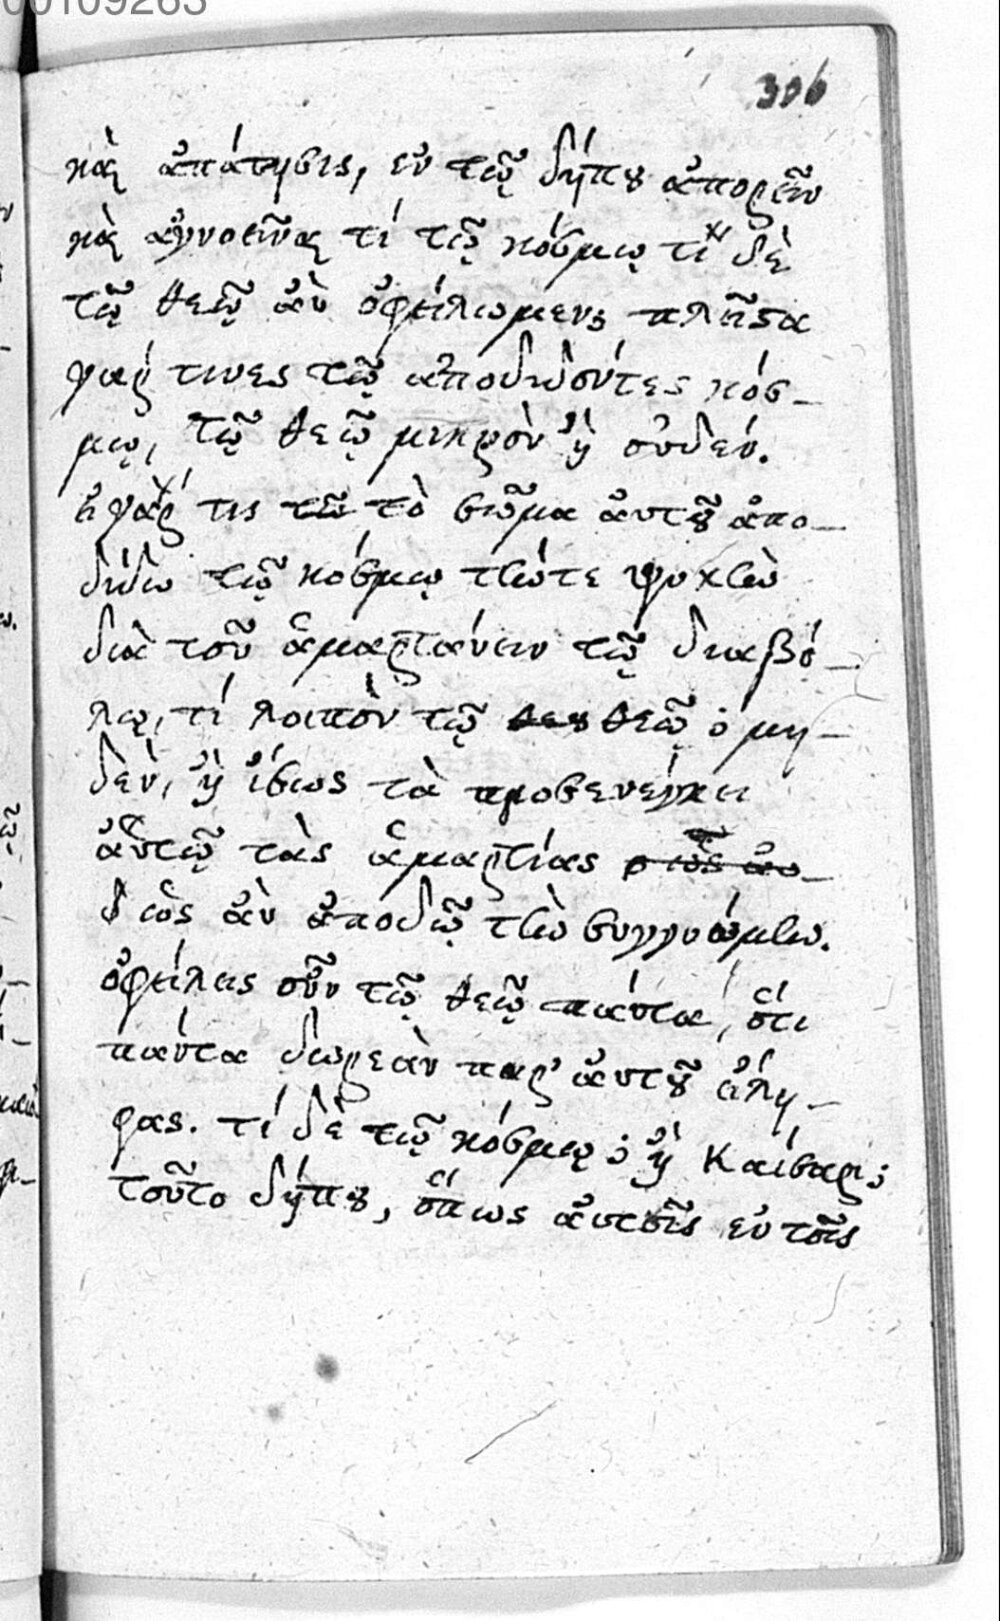 00109263
306
καὶ ἀπάτησις, ἐν τῷ δήπου ἀπορεῖν
καὶ ἀγνοεῖναι τί τῷ κόσμῳ τί δὲ
τῷ θεῷ ἂν ὀφείλωμεν πλεῖστα
γάρ τινες τῷ ἀποδιδόντες κόσ-
μῳ, τῷ θεῷ μικρὸν ἢ οὐδέν.
εἰ γάρ τις τῷ τὸ σῶμα αὐτοῦ ἀπο-
δίδω τῷ κόσμῳ τήντε ψυχὴν
διὰ τοῦ ἁμαρτάνειν τῷ διαβό-
λῳ, τί λοιπὸν τῷ θεου θεῷ ὁ μη-
δὲν, ἢ ἴσως τὰ προσενέγκει
αὐτῷ τὰς ἁμαρτίας
ὡς ἂν ἀποδῷ τὴν συγγνώμην.
ὀφείλεις οὖν τῷ θεῷ πάντα, ὅτι
πάντα δωρεὰν παρ' αὐτοῦ εἴλη-
φας. τί δὲ τῷ κόσμῳ ἢ Καίσαρι;
τοῦτο δήπου, ὅπως αὐτοῖς ἐν τοῖς